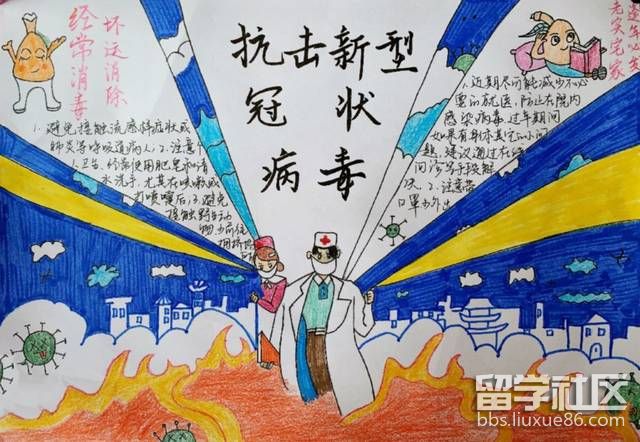 经常消毒
坏运消除
抗击新型
冠状
病毒
老实宅家
1.避免接触流感样症状或
肺炎等呼吸道病人;2.注意个
人卫生,经常使用肥皂和清
水洗手,尤其在咳嗽或
打喷嚏后;3.避免
接触野生动
物
1.近期尽可能减少不必
要的就医,防止在院内
感染病毒.过年期间
如果有身体其它的小问
题,建议通过在线
问诊等手段解
决.2.注意带
口罩少外出
留学社区
bbs.liuxue86.com